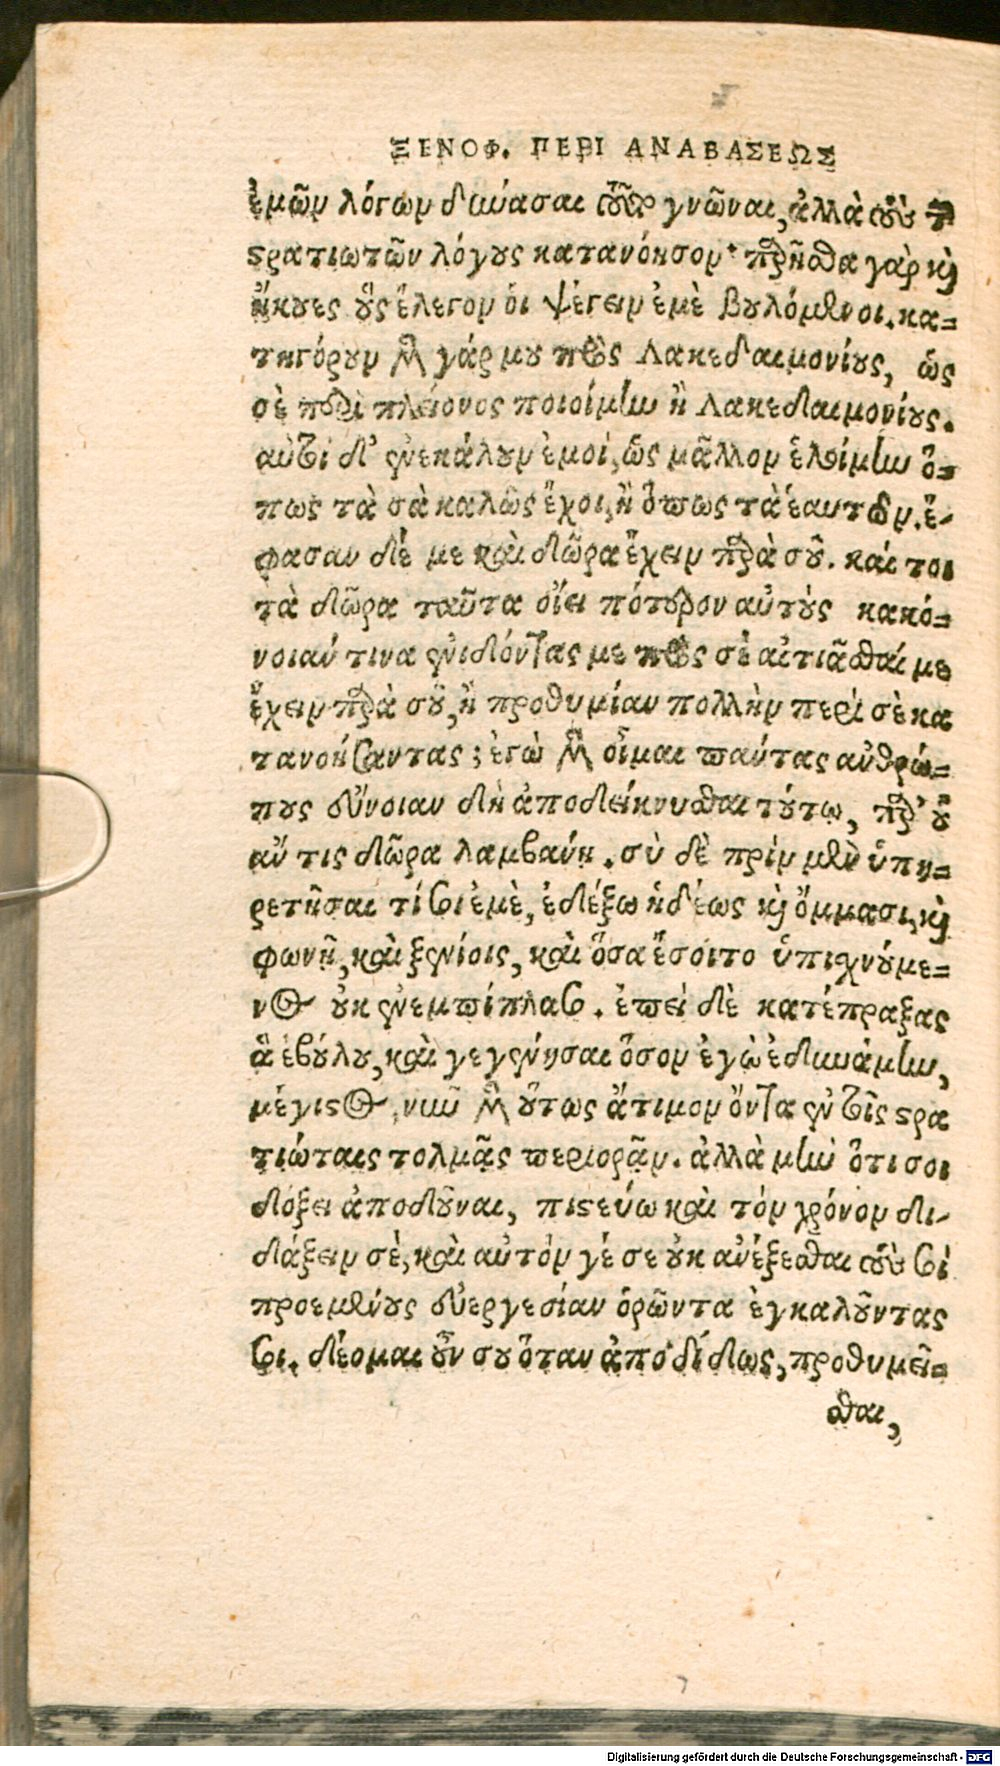 ΞΕΝΟΦ. ΠΕΡΙ ΑΝΑΒΑΣΕΩΣ
ἐμῶν λόγων δυνάσαι γνῶναι, ἀλλὰ τοὺς τῶν
στρατιωτῶν λόγους κατανόησον· παρῆσθα γὰρ καὶ
ἤκουες οὓς ἔλεγον οἱ ψέγειν ἐμὲ βουλόμενοι. κα=
τηγόρουν μὲν γάρ μου πρὸς Λακεδαιμονίους, ὡς
σὲ περὶ πλείονος ποιοίμην ἢ Λακεδαιμονίους.
αὐτοὶ δ' ἐνεκάλουν ἐμοὶ, ὡς μᾶλλον ἑλοίμην ὅ=
πως τὰ σὰ καλῶς ἔχοι, ἢ ὅπως τὰ ἑαυτῶν. ἔ-
φασαν δέ με καὶ δῶρα ἔχειν παρὰ σοῦ. καί τοι
τὰ δῶρα ταῦτα οἴει πότερον αὐτοὺς κακό=
νοιαν τινα ἐνιδόντας με πρὸς σὲ αἰτιᾶσθαί με
ἔχειν παρὰ σοῦ, ἢ προθυμίαν πολλὴν περὶ σὲ κα
τανοήσαντας; ἐγὼ μὲν οἶμαι πάντας ἀνθρώ=
πους εὔνοιαν δὴ ἀποδείκνυσθαι τούτῳ, παρ' οὗ
ἄν τις δῶρα λαμβάνῃ. σὺ δὲ πρὶν μὲν ὑπη=
ρετῆσαι τί σοι ἐμὲ, ἐδέξω ἡδέως καὶ ὄμμασι, καὶ
φωνῇ, καὶ ξενίοις, καὶ ὅσα ἔσοιτο ὑπισχνούμε=
νος οὐκ ἐνεπίπλασο. ἐπεὶ δὲ κατέπραξας
ἃ ἐβούλου, καὶ γεγένησαι ὅσον ἐγὼ ἐδυνάμην,
μέγιστος, νῦν μὲν οὕτως ἄτιμον ὄντα ἐν τοῖς στρα
τιώταις τολμᾷς περιορᾷν. ἀλλὰ μὴν ὅτι σοι
δόξει ἀποδοῦναι, πιστεύω καὶ τὸν χρόνον δι-
δάξειν σὲ, καὶ αὐτόν γέ σε οὐκ ἀνέξεσθαι τοὺς σοὶ
προεμένους εὐεργεσίαν ὁρῶντα ἐγκαλοῦντας
σοι. δέομαι οὖν σου ὅταν ἀποδίδως, προθυμεῖ=
σθαι,
Digitalisierung gefördert durch die Deutsche Forschungsgemeinschaft - DFG